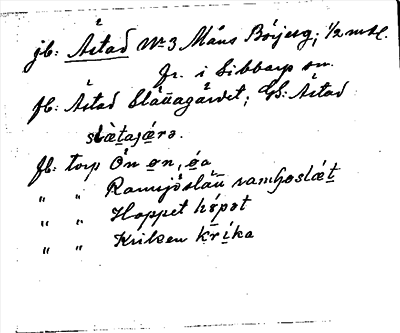 jb: Åstad No 3 Måns Börjesg; 1/2 mtl.
fr. i Sibbarps sn.
fb: Åstad Slättagärdet; GS: Åstad
slætajæ̨rə.
fb: torp Ön øn, øa
" " Ramsjöslätt ramʃoslæt
" " Hoppet hópət
" " Kriken krika